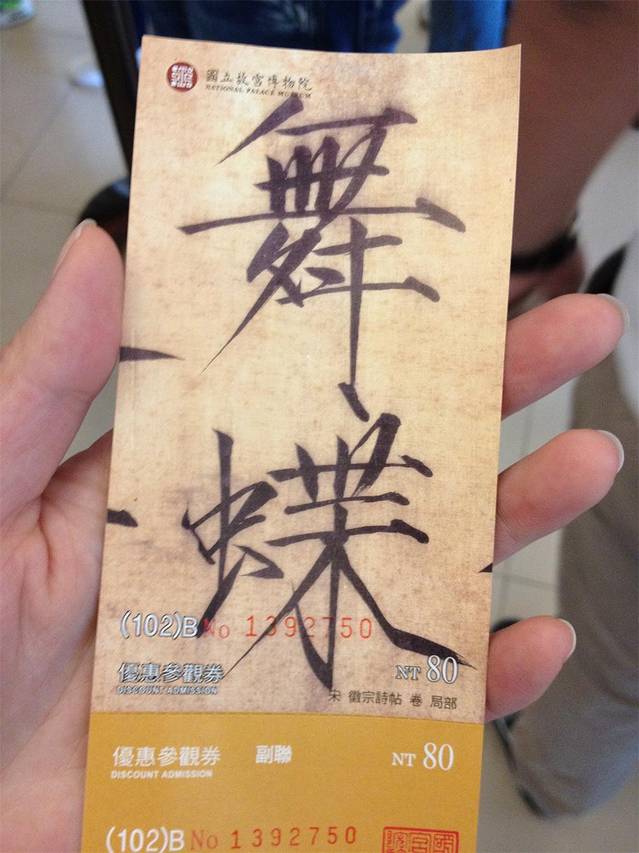 國立故宮博物院
NATIONAL PALACE MUSEUM
舞
蝶
(102)B No 1392750
優惠參觀券 NT 80
DISCOUNT ADMISSION
宋 徽宗詩帖 卷 局部
優惠參觀券 副聯 NT 80
DISCOUNT ADMISSION
(102)B No 1392750